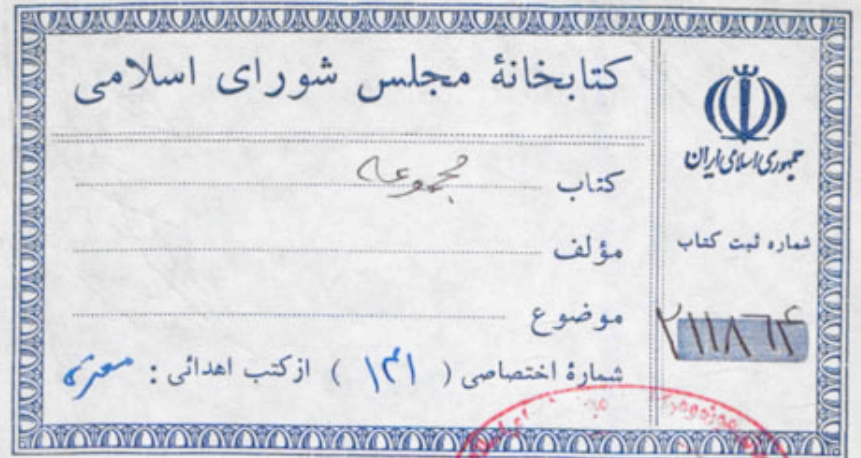 کتابخانهٔ مجلس شورای اسلامی
کتاب مجموعه
مؤلف
موضوع
شمارهٔ اختصاصی ( ۱۴۱ ) از کتب اهدائی :
جمهوری اسلامی ایران
شماره ثبت کتاب
۲۱۱۸۶۴